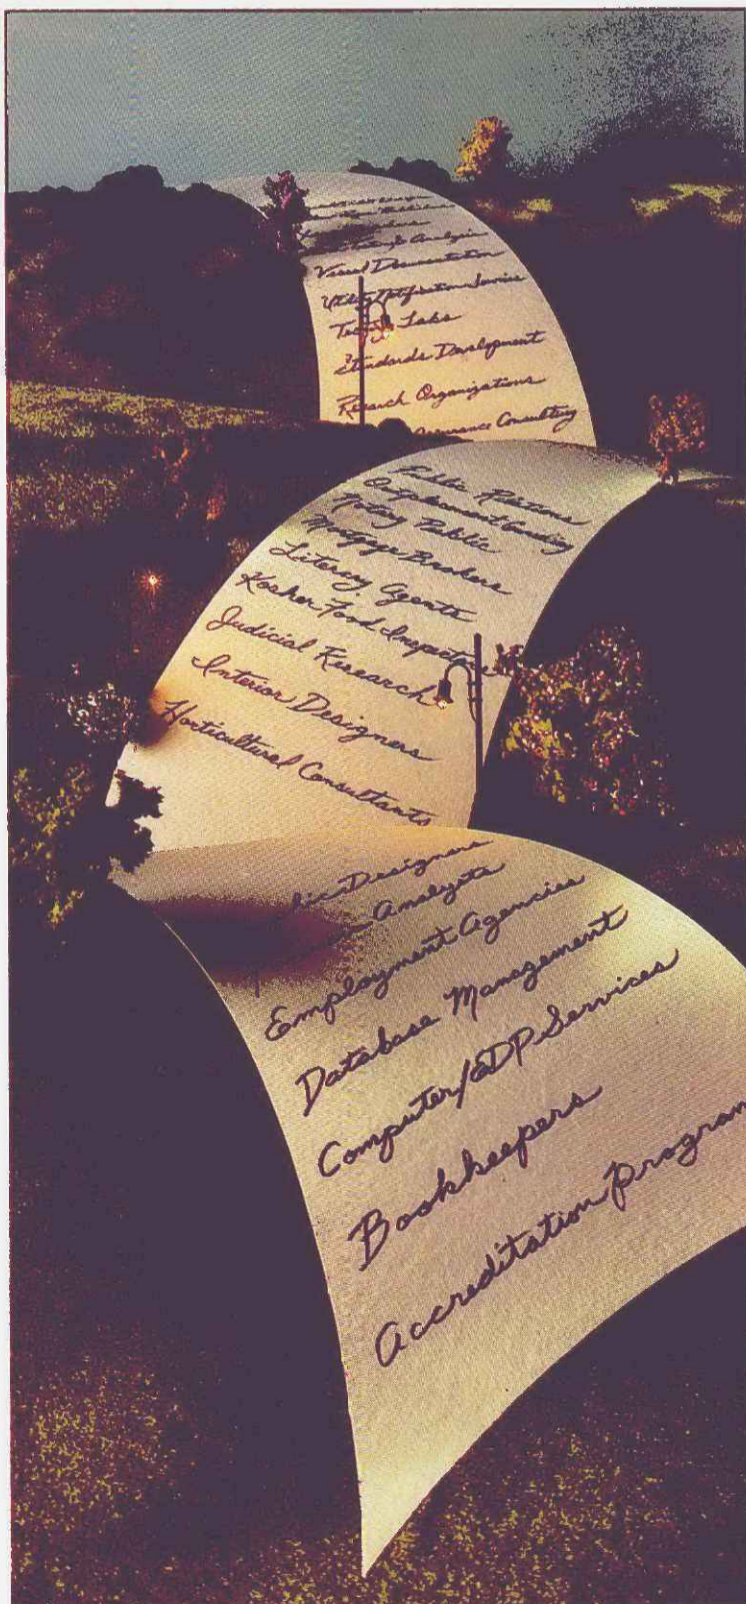 & Analysis
Visual Documentation
Utility Notification Service
Labs
Standards Development
Research Organizations
Consulting
Public Relations
Employment
Notary Public
Mortgage Brokers
Literary Agents
Kosher Food Inspectors
Judicial Research
Interior Designers
Horticultural Consultants
Designers
Analysts
Employment Agencies
Database Management
Computer/EDP Services
Bookkeepers
Accreditation Program